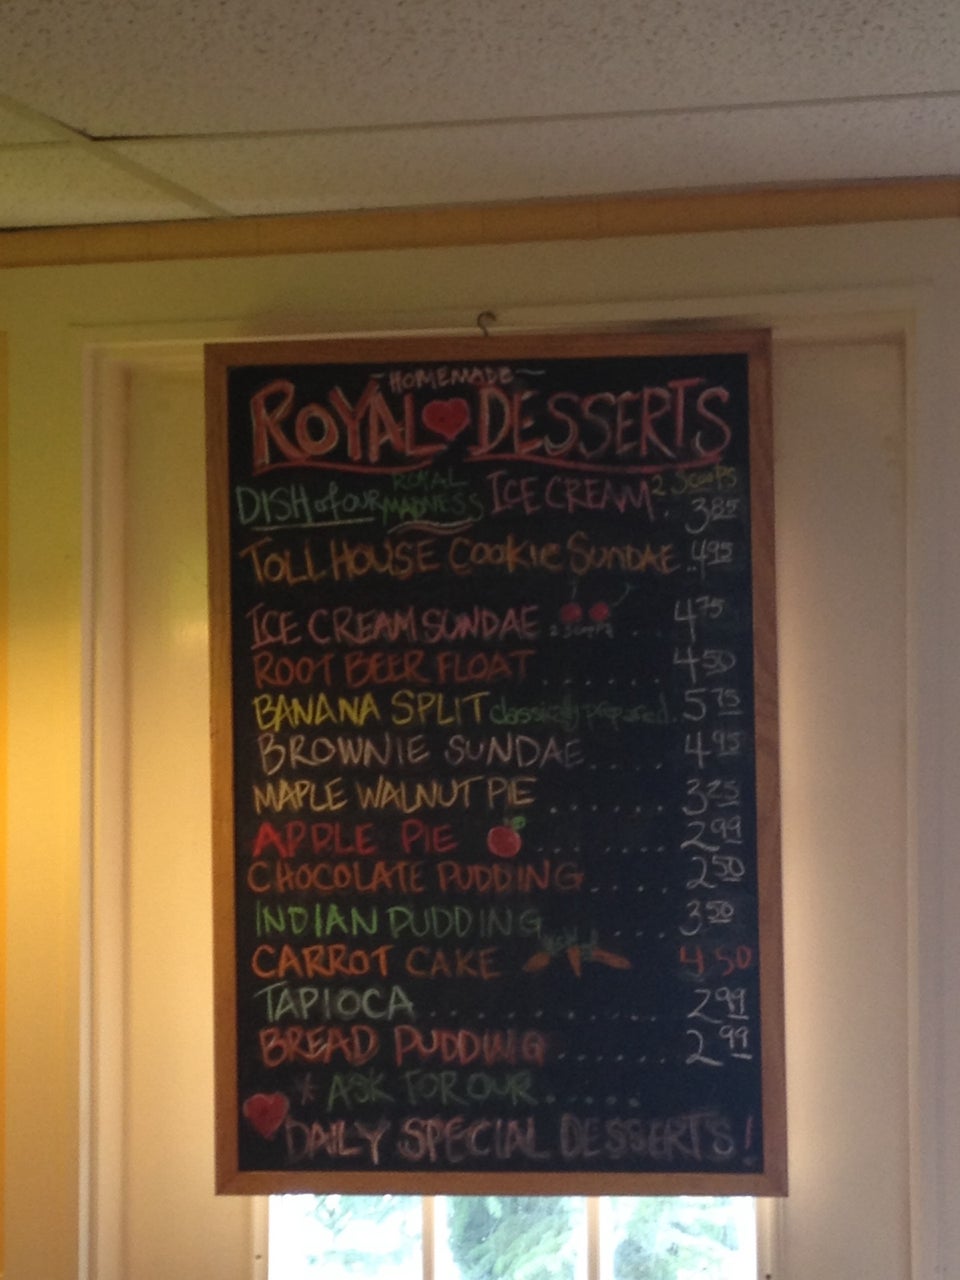 ~HOMEMADE~
ROYAL DESSERTS
DISH of our ROYAL MADNESS ICE CREAM 2 Scoops . 3.85
TOLL HOUSE Cookie SUNDAE .. 4.95
ICE CREAM SUNDAE 2 scoops . . . 4.75
ROOT BEER FLOAT ...... 4.50
BANANA SPLIT classically prepared. . 5.75
BROWNIE SUNDAE..... 4.95
MAPLE WALNUT PIE ...... 3.25
APPLE PIE ....... 2.99
CHOCOLATE PUDDING..... 2.50
INDIAN PUDDING .... 3.50
CARROT CAKE 4.50
TAPIOCA .......... 2.99
BREAD PUDDING...... 2.99
* ASK FOR OUR.....
DAILY SPECIAL DESSERTS!